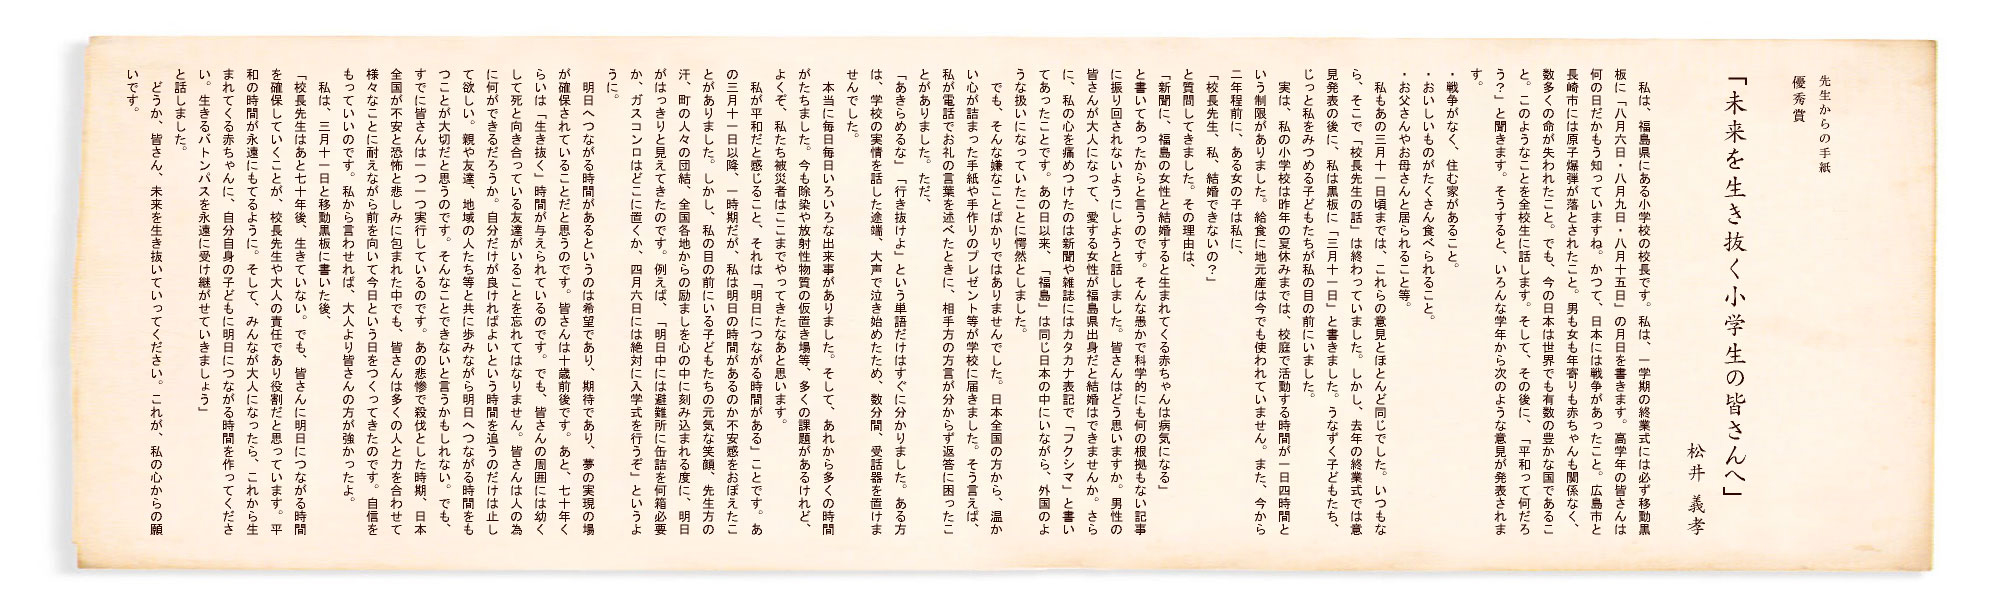 先生からの手紙
優秀賞
「未来を生き抜く小学生の皆さんへ」
松井 義孝
　私は、福島県にある小学校の校長です。私は、一学期の終業式には必ず移動黒
板に「八月六日・八月九日・八月十五日」の月日を書きます。高学年の皆さんは
何の日だかもう知っていますね。かつて、日本には戦争があったこと。広島市と
長崎市には原子爆弾が落とされたこと。男も女も年寄りも赤ちゃんも関係なく、
数多くの命が失われたこと。でも、今の日本は世界でも有数の豊かな国であるこ
と。このようなことを全校生に話します。そして、その後に、「平和って何だろ
う？」と聞きます。そうすると、いろんな学年から次のような意見が発表されま
す。
・戦争がなく、住む家があること。
・おいしいものがたくさん食べられること。
・お父さんやお母さんと居られること等。
　私もあの三月十一日頃までは、これらの意見とほとんど同じでした。いつもな
ら、そこで「校長先生の話」は終わっていました。しかし、去年の終業式では意
見発表の後に、私は黒板に「三月十一日」と書きました。うなずく子どもたち、
じっと私をみつめる子どもたちが私の目の前にいました。
　実は、私の小学校は昨年の夏休みまでは、校庭で活動する時間が一日四時間と
いう制限がありました。給食に地元産は今でも使われていません。また、今から
二年程前に、ある女の子は私に、
「校長先生、私、結婚できないの？」
と質問してきました。その理由は、
「新聞に、福島の女性と結婚すると生まれてくる赤ちゃんは病気になる」
と書いてあったからと言うのです。そんな愚かで科学的にも何の根拠もない記事
に振り回されないようにしようと話しました。皆さんはどう思いますか。男性の
皆さんが大人になって、愛する女性が福島県出身だと結婚はできませんか。さら
に、私の心を痛めつけたのは新聞や雑誌にはカタカナ表記で「フクシマ」と書い
てあったことです。あの日以来、「福島」は同じ日本の中にいながら、外国のよ
うな扱いになっていたことに愕然としました。
　でも、そんな嫌なことばかりではありませんでした。日本全国の方から、温か
い心が詰まった手紙や手作りのプレゼント等が学校に届きました。そう言えば、
私が電話でお礼の言葉を述べたときに、相手方の方言が分からず返答に困ったこ
とがありました。ただ、
「あきらめるな」「行き抜けよ」という単語だけはすぐに分かりました。ある方
は、学校の実情を話した途端、大声で泣き始めたため、数分間、受話器を置けま
せんでした。
　本当に毎日毎日毎日いろいろな出来事がありました。そして、あれから多くの時間
がたちました。今も除染や放射性物質の仮置き場等、多くの課題があるけれど、
よくぞ、私たち被災者はここまでやってきたなあと思います。
　私が平和だと感じること、それは「明日につながる時間がある」ことです。あ
の三月十一日以降、一時期だが、私は明日の時間があるのか不安感をおぼえたこ
とがありました。しかし、私の目の前にいる子どもたちの元気な笑顔、先生方の
汗、町の人々の団結、全国各地からの励ましを心の中に刻み込まれる度に、明日
がはっきりと見えてきたのです。例えば、「明日中には避難所に缶詰を何箱必要
か、ガスコンロはどこに置くか、四月六日には絶対に入学式を行うぞ」というよ
うに。
　明日へつながる時間があるというのは希望であり、期待であり、夢の実現の場
が確保されていることだと思うのです。皆さんは十歳前後です。あと、七十年く
らいは「生き抜く」時間が与えられているのです。でも、皆さんの周囲には幼く
して死と向き合っている友達がいることを忘れてはなりません。皆さんは人の為
に何ができるだろうか。自分だけが良ければよいという時間を追うのだけは止し
て欲しい。親や友達、地域の人たち等と共に歩みながら明日へつながる時間をも
つことが大切だと思うのです。そんなことできないと言うかもしれない。でも、
すでに皆さんは一つ一つ実行しているのです。あの悲惨で殺伐とした時期、日本
全国が不安と恐怖と悲しみに包まれた中でも、皆さんは多くの人と力を合わせて
様々なことに耐えながら前を向いて今日という日をつくってきたのです。自信を
もっていいのです。私から言わせれば、大人より皆さんの方が強かったよ。
　私は、三月十一日と移動黒板に書いた後、
「校長先生はあと七十年後、生きていない。でも、皆さんに明日につながる時間
を確保していくことが、校長先生や大人の責任であり役割だと思っています。平
和の時間が永遠にもてるように。そして、みんなが大人になったら、これから生
まれてくる赤ちゃんに、自分自身の子どもに明日につながる時間を作ってくださ
い。生きるバトンパスを永遠に受け継がせていきましょう」
と話しました。
　どうか、皆さん、未来を生き抜いていってください。これが、私の心からの願
いです。